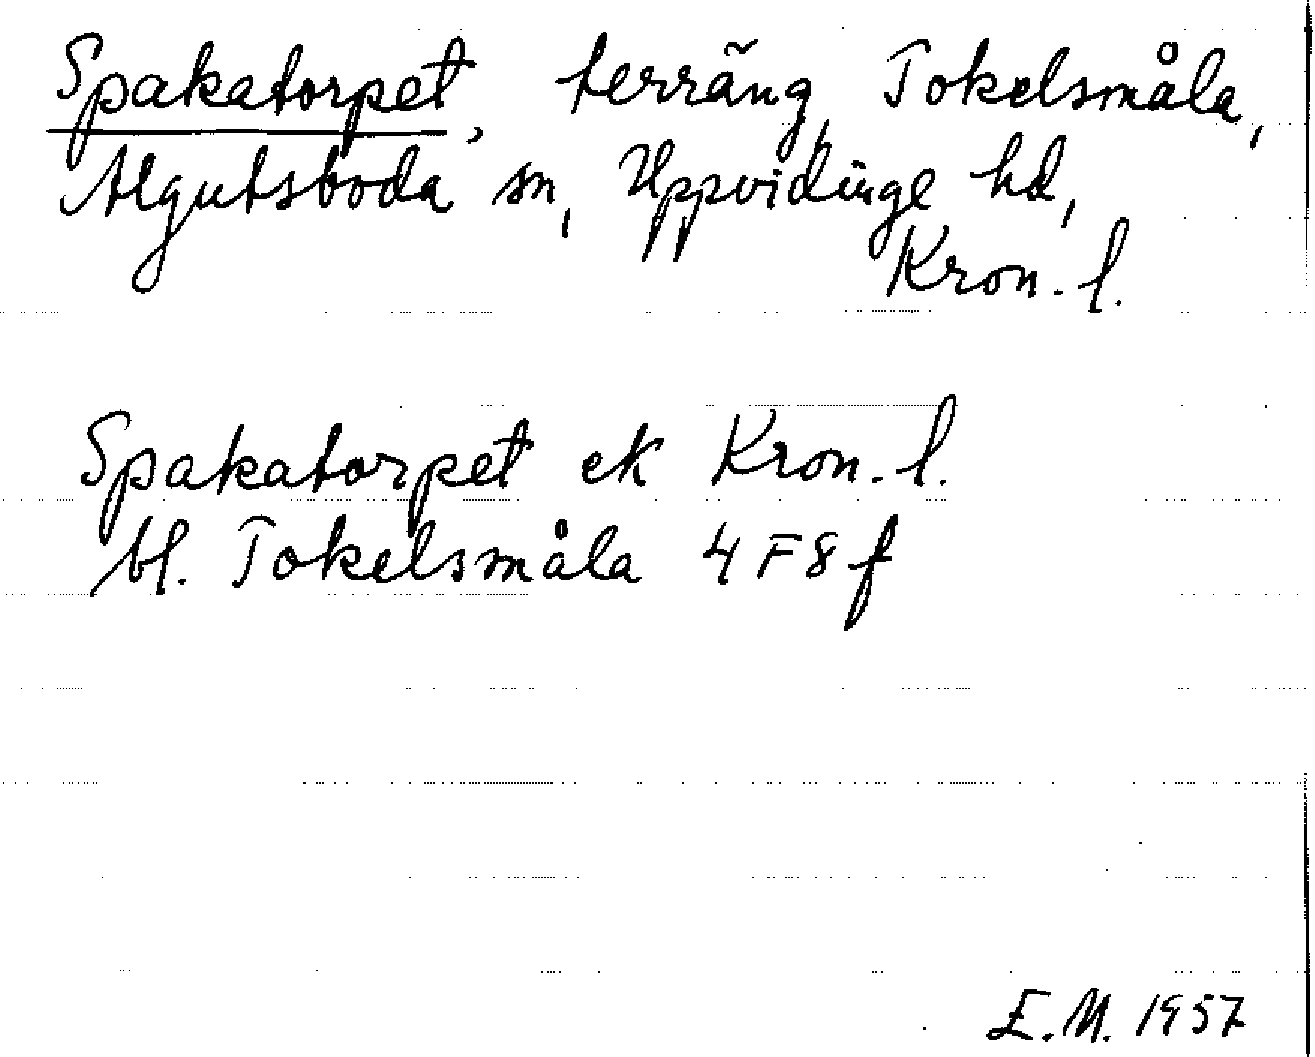 Spakatorpet, terräng, Tokelsmåla,
Algutsboda sn, Uppvidinge hd,
Kron. l.
Spakatorpet ek Kron. l.
bl. Tokelsmåla 4F8f
E.M. 1957